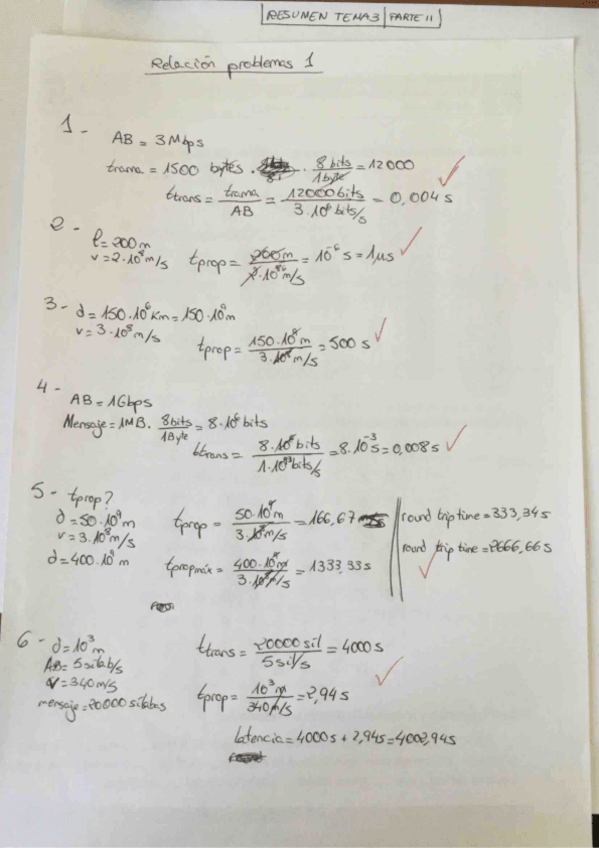 RESUMEN TEMA3 | PARTE II
Relación problemas 1
1-
AB = 3Mbps
trama = 1500 bytes · 8 bits/1byte = 12000
ttrans = trama/AB = 12000bits/3·10⁶ bits/s = 0,004 s
2-
l = 200m
v = 2·10⁸ m/s
tprop = 200m/2·10⁸ m/s = 10⁻⁶ s = 1μs
3- d = 150·10⁶ Km = 150·10⁹ m
v = 3·10⁸ m/s
tprop = 150·10⁹ m/3·10⁸ m/s = 500 s
4-
AB = 1Gbps
Mensaje = 1MB · 8bits/1Byte = 8·10⁶ bits
ttrans = 8·10⁶ bits/1·10⁹ bits/s = 8·10⁻³ s = 0,008 s
5- tprop?
d = 50·10⁹ m
v = 3·10⁸ m/s
d = 400·10⁹ m
tprop = 50·10⁹ m/3·10⁸ m/s = 166,67
round trip time = 333,34 s
tpropmáx = 400·10⁹ m/3·10⁸ m/s = 1333,33 s
round trip time = 2666,66 s
6- d = 10³ m
AB = 5 silab/s
v = 340 m/s
mensaje = 20000 silabas
ttrans = 20000 sil/5 sil/s = 4000 s
tprop = 10³ m/340 m/s = 2,94 s
latencia = 4000s + 2,94s = 4002,94s